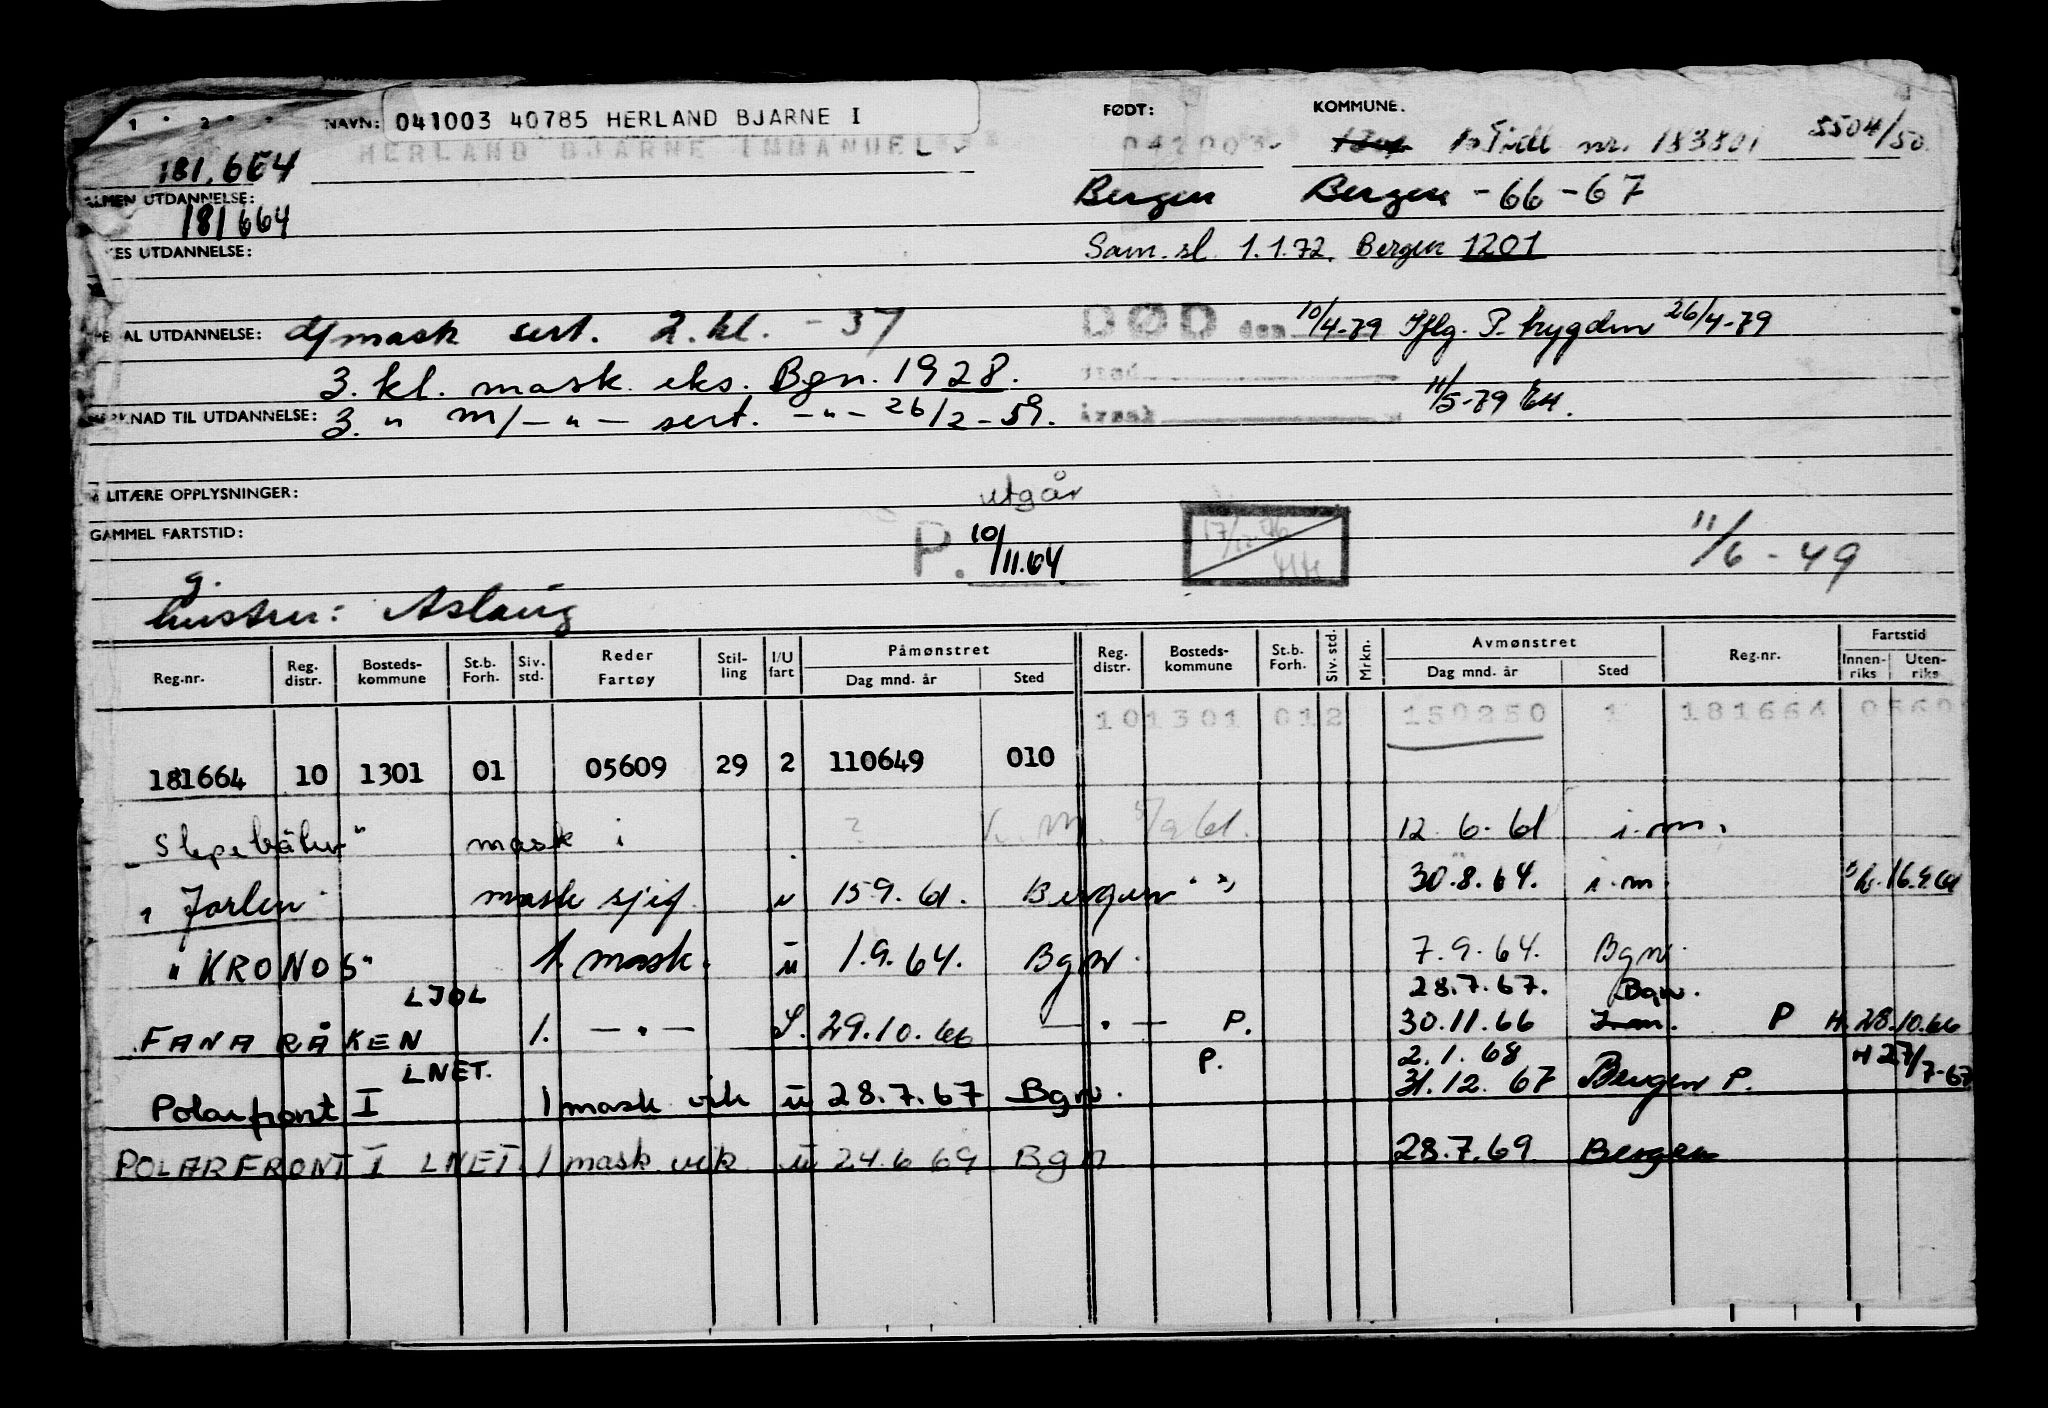 1 · 2 · ·
NAVN: 041003 40785 HERLAND BJARNE I
HERLAND BJARNE IMMANUEL
FØDT:
041003
KOMMUNE.
Tidl nr. 183801
5504/50
181.664
Bergen Bergen - 66 - 67
ALMEN UTDANNELSE:
181664
Sam. sl. 1.1.72. Bergen 1201
ES UTDANNELSE:
AL UTDANNELSE: mask sert. 2. kl. - 37
DØD den 10/4-79 Iflg. P. trygden 26/4-79
3. kl. mask. eks. Bgn. 1928.
sted
11/5-79
NAD TIL UTDANNELSE: 3. " m/ - " - sert. - " - 26/2 - 59.
årsak
LITÆRE OPPLYSNINGER:
utgår
GAMMEL FARTSTID:
P. 10/11.64
11/6 - 49
g.
hustru: Aslaug
Reg.nr. Reg. distr. Bosteds-kommune St.b. Forh. Siv. std. Reder Fartøy Stil-ling I/U fart Påmønstret Dag mnd. år Sted Reg. distr. Bosteds-kommune St.b. Forh. Siv. std. Mrkn. Avmønstret Dag mnd. år Sted Reg.nr. Fartstid Innen-riks Uten-riks
101301 012 150250 1 181664 0560
181664 10 1301 01 05609 29 2 110649 010
mask i ? 12. 6. 61 i.m.
" Jorlin mask sjef u 15 9. 61. Bergen 30.8.64. i.m. 16.9.64
"KRONOS" 1. mask. u 1.9.64. Bgn. 7.9.64. Bgn.
LJOL 28.7.67. Bgn.
FANARÅKEN 1. — " — S. 29.10.66 — " — P. 30.11.66 I.m. P H 28.10.66
LNET. P. 2.1.68 H 27/7-67
Polarfront I 1 mask vik u 28.7.67 Bgn. 31.12.67 Bergen P.
POLARFRONT I LNET. 1 mask vik u 24.6 69 Bgn 28.7.69. Bergen